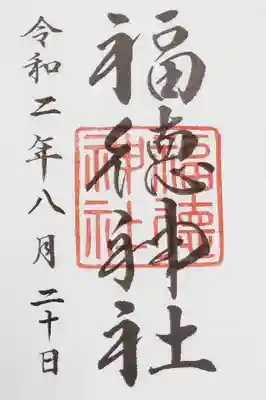 福德神社
福德神社
令和二年八月二十日